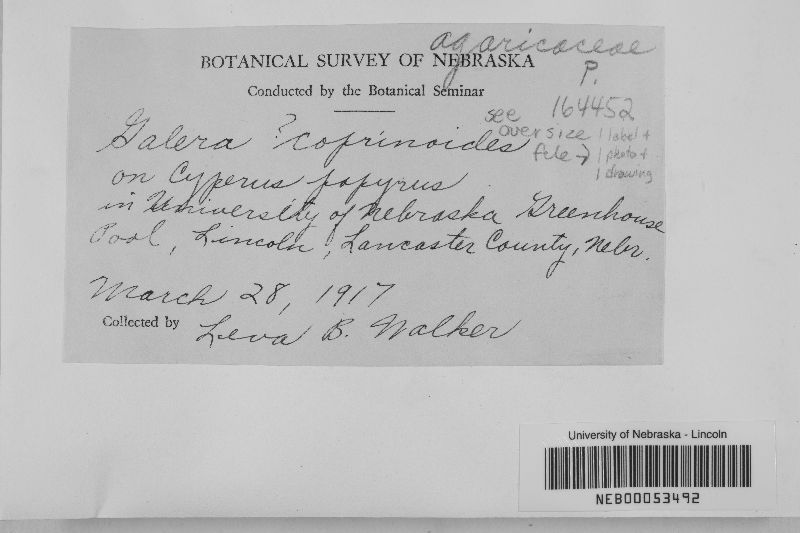 agaricaceae
BOTANICAL SURVEY OF NEBRASKA
P.
Conducted by the Botanical Seminar
164452
see
over size
file →
1 label +
1 photo +
1 drawing
Galera ? coprinoides
on Cyperus papyrus
in University of Nebraska Greenhouse
Pool, Lincoln, Lancaster County, Nebr.
March 28, 1917
Collected by Leva B. Walker
University of Nebraska - Lincoln
NEB00053492